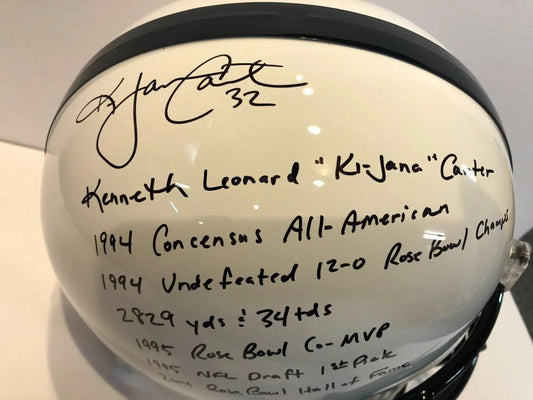 Ki-Jana Carter
32
Kenneth Leonard "Ki-Jana" Carter
1994 Concensus All-American
1994 Undefeated 12-0 Rose Bowl Champs
2829 yds & 34 tds
1995 Rose Bowl Co-MVP
1995 NFL Draft 1st Pick
2014 Rose Bowl Hall of Fame